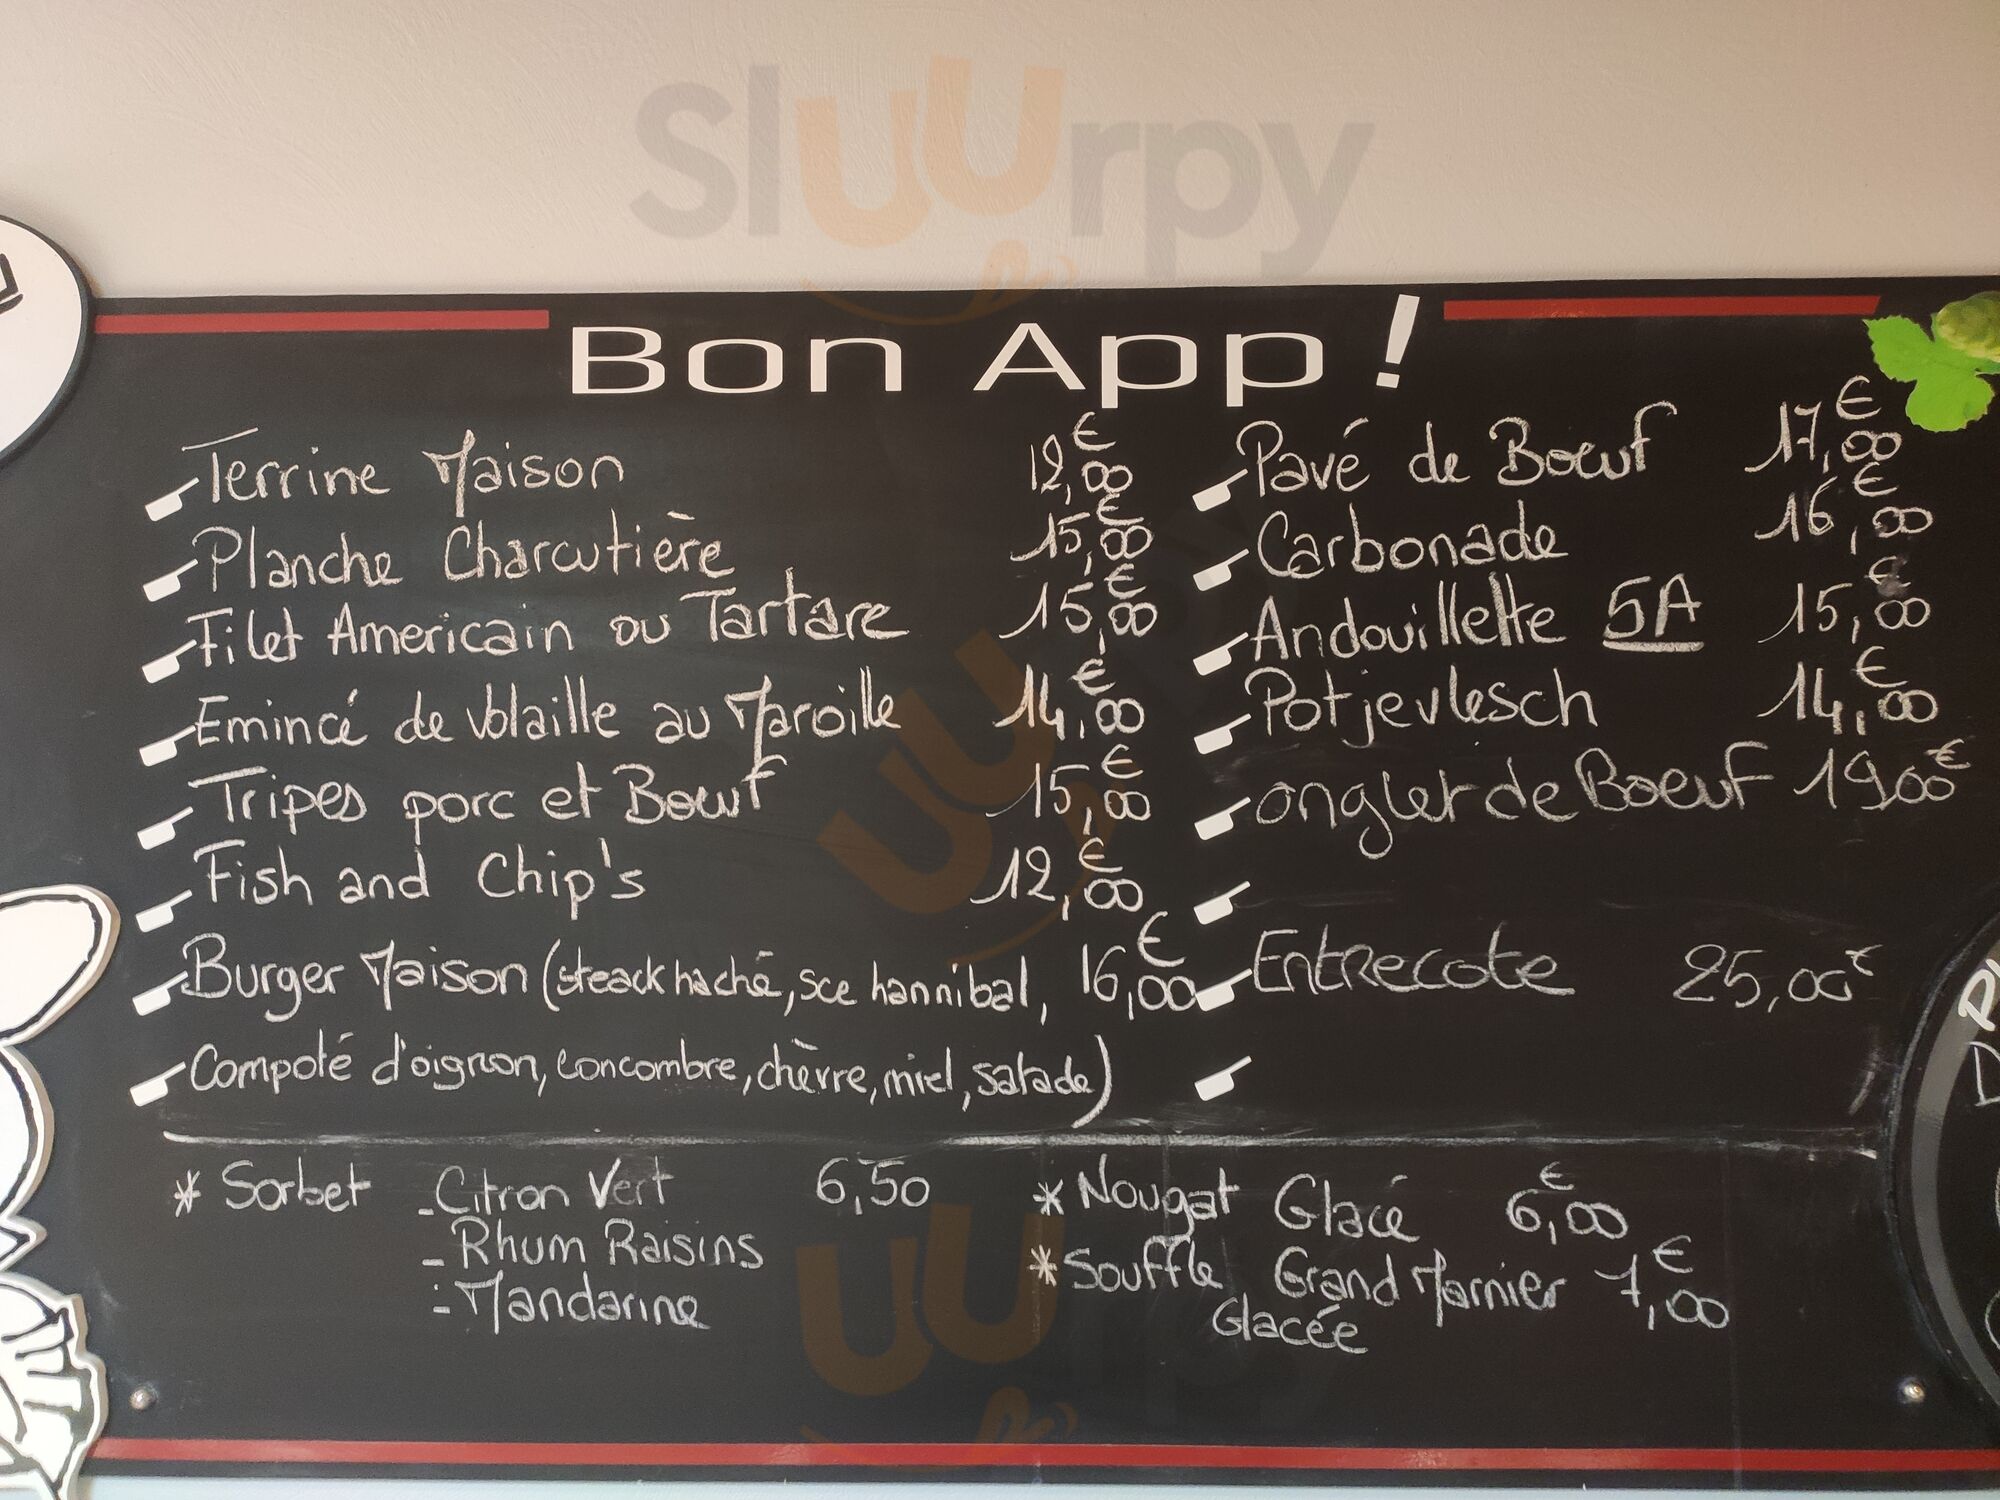 Sluurpy
Bon App !
Terrine Maison 12,00€
Planche Charcutière 15,00€
Filet Americain ou Tartare 15,00€
Emincé de Volaille au Maroille 14,00€
Tripes porc et Bœuf 15,00€
Fish and Chip's 12,00€
Burger Maison (steack haché, sce hannibal, 16,00€
Compoté d'oignon, concombre, chèvre, miel, salade)
Pavé de Bœuf 17,00€
Carbonade 16,00€
Andouillette 5A 15,00€
Potjevlesch 14,00€
onglet de Boeuf 19,00€
Entrecote 25,00€
* Sorbet - Citron Vert 6,50
- Rhum Raisins
- Mandarine
* Nougat Glacé 6,00€
* Souffle Grand Marnier 7,00€
Glacée